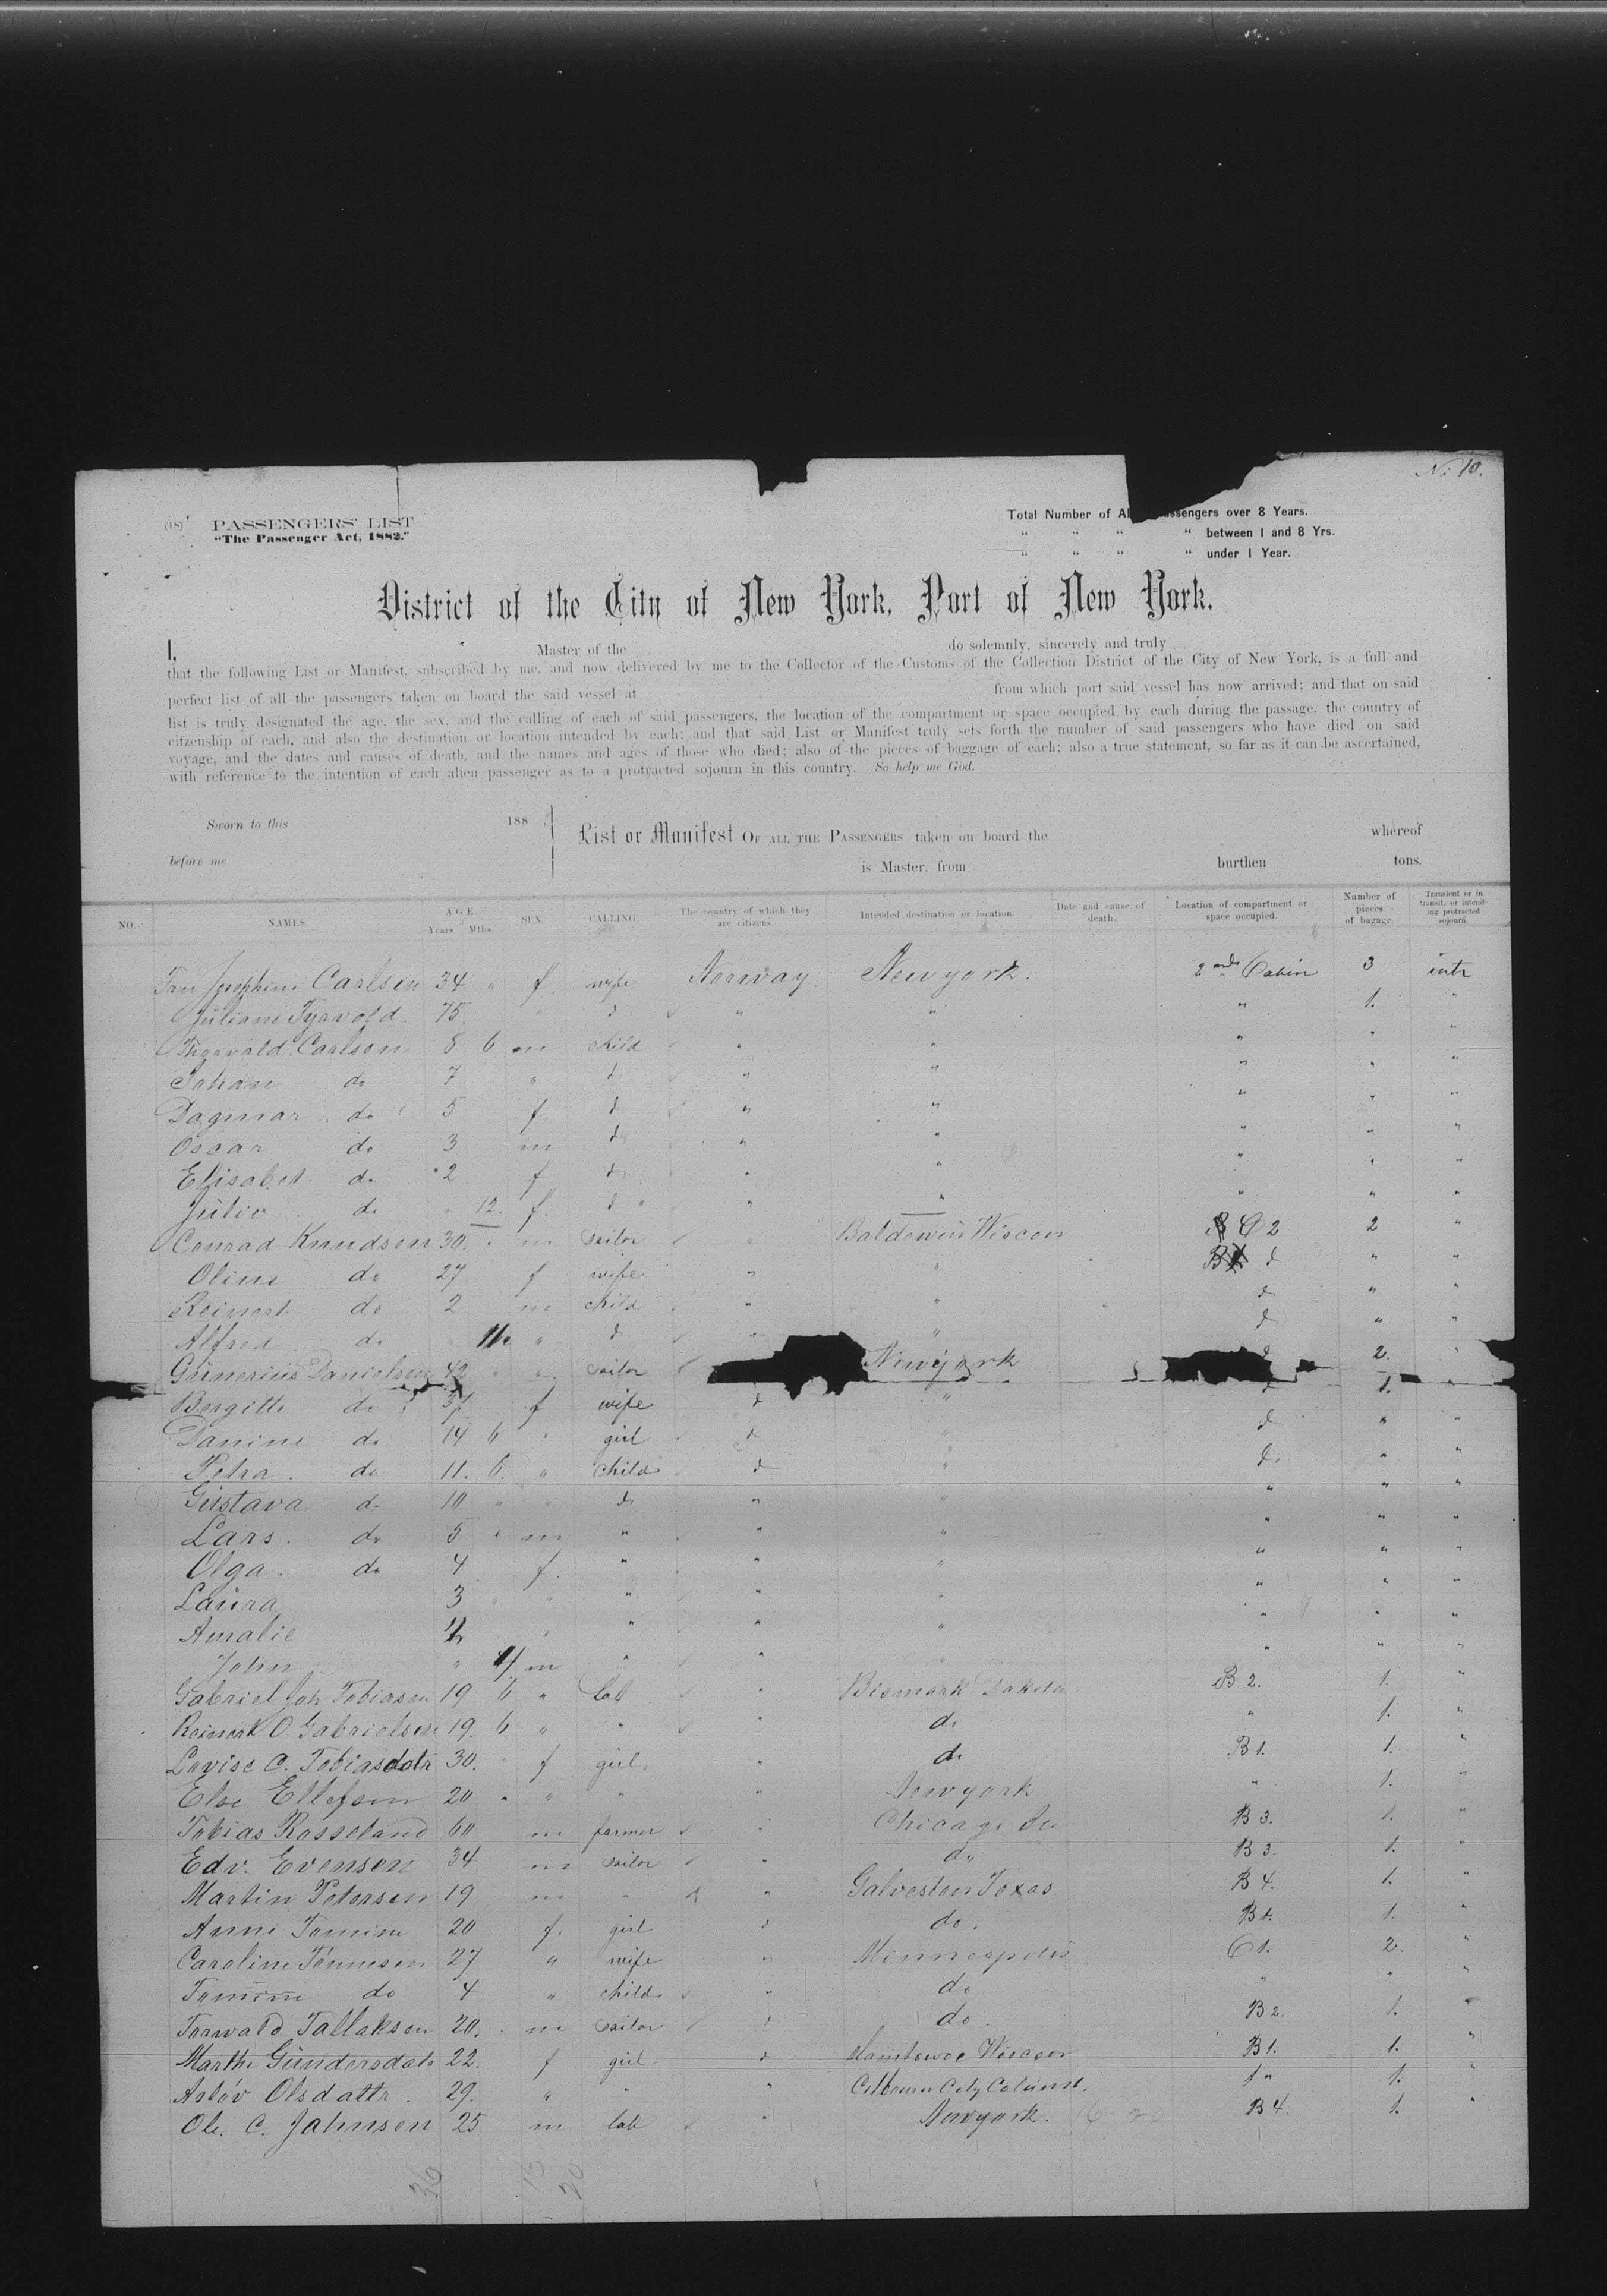 No 10.
(18) PASSENGERS' LIST
"The Passenger Act, 1882."
Total Number of Al assengers over 8 Years.
" " " " between 1 and 8 Yrs.
" " " " under 1 Year.
District of the City of New York, Port of New York.
I, Master of the do solemnly, sincerely and truly
that the following List or Manifest, subscribed by me, and now delivered by me to the Collector of the Customs of the Collection District of the City of New York, is a full and
perfect list of all the passengers taken on board the said vessel at from which port said vessel has now arrived; and that on said
list is truly designated the age, the sex, and the calling of each of said passengers, the location of the compartment or space occupied by each during the passage, the country of
citzenship of each, and also the destination or location intended by each; and that said List or Manifest truly sets forth the number of said passengers who have died on said
voyage, and the dates and causes of death, and the names and ages of those who died; also of the pieces of baggage of each; also a true statement, so far as it can be ascertained,
with reference to the intention of each alien passenger as to a protracted sojourn in this country. So help me God.
Sworn to this 188
before me
List or Manifest OF ALL THE PASSENGERS taken on board the whereof
is Master, from burthen tons.
NO. NAMES. AGE Years. Mths. SEX. CALLING. The country of which they are citizens. Intended destination or location. Date and cause of death. Location of compartment or space occupied. Number of pieces of bagage. Transient or in transit, or intending protracted sojourn.
Fru Josephine Carlsen 34 " f wife Norway Newyork. 2nd Cabin 3 intr
Juliane Tyrvold 75 " d " " " 1. "
Thorvald Carlson 8 6 m child " " " " "
Johan do 7 " d " " " " "
Dagmar do 5 f d " " " " "
Oscar do 3 m d " " " " "
Elisabet do 2 f d " " " " "
Julie do " 12. f. d " " " " "
Conrad Knudson 30. " m sailor " Baldewin Wiscon C 2 2 "
Oline do 27 f wife " " d " "
Reinert do 2 m child " " d " "
Alfred do " 11 " d " " d " "
Gunerius Danielsen 42 " " sailor Newyork d 2. "
Bergitte do 37 f wife d " d 1. "
Danine do 14 6 " girl d " d " "
Petra do 11. 6. " child d " d " "
Gustava do 10 " " d " " " " "
Lars do 5 " m " " " " " "
Olga do 4 f. " " " " " "
Laura 3 " " " " " " " "
Amalie " " " " " " "
John " m " " " " " "
Gabriel Joh Tobiasen 19 6 " lab " Bismark Dakota B 2. 1. "
Reinert O. Gabrielsen 19. 6 " " " do " 1. "
Lovise C. Tobiasdatr 30. f girl " do B 1. 1. "
Else Ellefsen 20 " " " " Newyork " 1. "
Tobias Rosseland 60 m farmer " Chicago B 3. 1. "
Edv. Evensen 34 m sailor " do B 3. 1. "
Martin Petersen 19 m " " Galveston Texas B 4. 1. "
Anne Tomine 20 f. girl d do. B 1. 1. "
Caroline Tönnesen 27 " wife " Minneapolis C 1. 2. "
Tomine do 4 " child " do " " "
Torwald Tallaksen 20. m sailor d do. B 2. 1. "
Marthe Gundersdatr 22. f girl d B 1. 1. "
Aslöv Olsdattr. 29. " " " City " 1. "
Ole. C. Jahnsen 25 m lab " Newyork. 16 20 B 4. 1. "
36 16 20